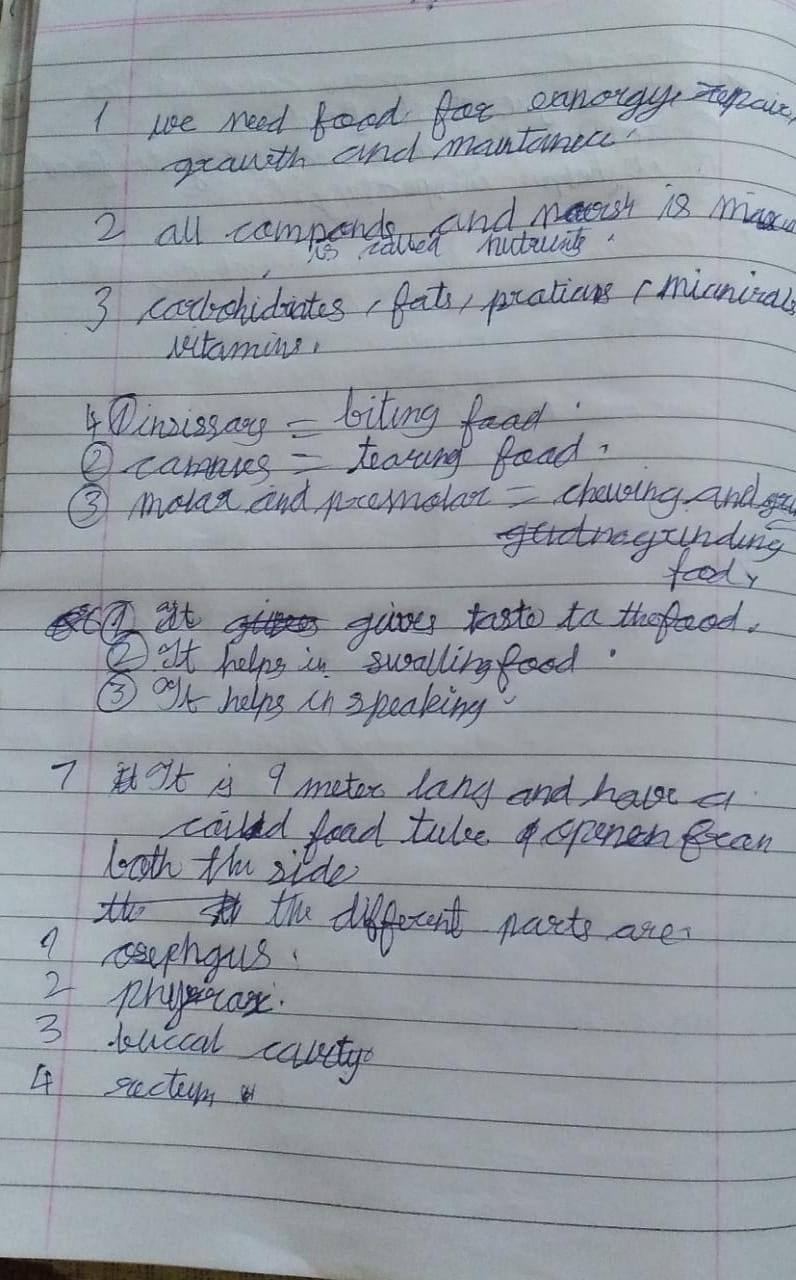 1 we need food for eanorgy, repair,
grauth and mantanece.
2 all componds and is
is called nutrients.
3 carbohidrates, fats, pratians, mianirals
vitamins.
4 ① insissary = biting faad.
② cannies = tearing food.
③ molar and premolar = chewing and
grinding
food,
6 ① It gives taste ta thefaod.
② It helps in swalling food.
③ It helps in speaking
7 It is 9 meter lang and have a
called foad tube openen
both the side
the different parts are.
1 osephgus.
2
3 buccal cavity
4 rectum